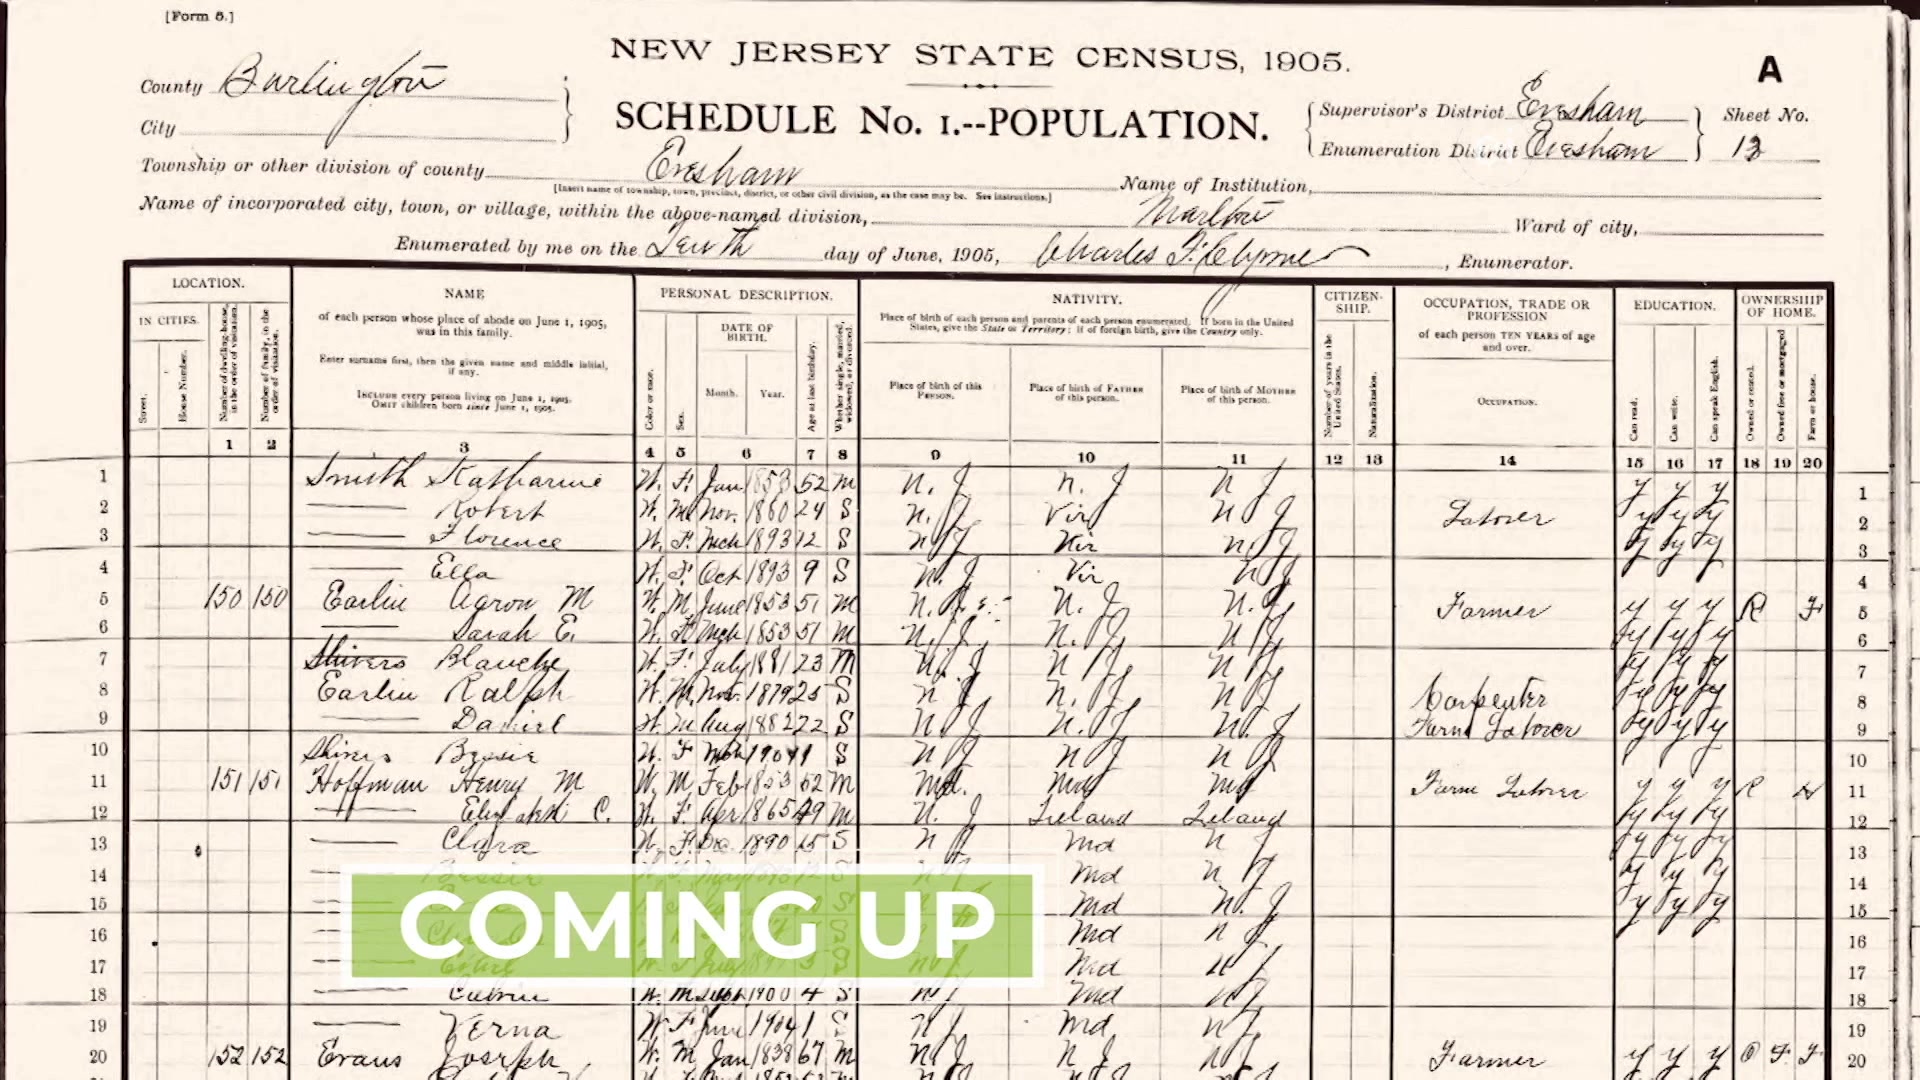 [Form 5.]
NEW JERSEY STATE CENSUS, 1905.
A
County Burlington
City
SCHEDULE No. 1.--POPULATION.
Supervisor's District Evesham
Enumeration District Evesham
Sheet No.
13
Township or other division of county Evesham
[Insert name of township, town, precinct, district, or other civil division, as the case may be. See instructions.]
Name of Institution,
Name of incorporated city, town, or village, within the above-named division, Marlton
Ward of city,
Enumerated by me on the Tenth day of June, 1905, Charles F. Clyme, Enumerator.
LOCATION.
IN CITIES.
Street.
House Number.
Number of dwelling-house, in the order of visitation.
Number of family, in the order of visitation.
NAME
of each person whose place of abode on June 1, 1905, was in this family.
Enter surname first, then the given name and middle initial, if any.
INCLUDE every person living on June 1, 1905.
OMIT children born since June 1, 1905.
PERSONAL DESCRIPTION.
Color or race.
Sex.
DATE OF BIRTH.
Month. Year.
Age at last birthday.
Whether single, married, widowed, or divorced.
NATIVITY.
Place of birth of each person and parents of each person enumerated. If born in the United States, give the State or Territory; if of foreign birth, give the Country only.
Place of birth of this PERSON.
Place of birth of FATHER of this person.
Place of birth of MOTHER of this person.
CITIZEN-SHIP.
Number of years in the United States.
Naturalization.
OCCUPATION, TRADE OR PROFESSION
of each person TEN YEARS of age and over.
OCCUPATION.
EDUCATION.
Can read.
Can write.
Can speak English.
OWNERSHIP OF HOME.
Owned or rented.
Owned free or mortgaged
Farm or house.
1 2 3 4 5 6 7 8 9 10 11 12 13 14 15 16 17 18 19 20
1 Smith Katharine W. F. Jan 1853 52 M N. J N. J N J y y y 1
2 Robert W. M Nov. 1860 24 S N. J Vir N J Laborer y y y 2
3 Florence W. F. Mch 1893 12 S N J Vir N. J y y y 3
4 Ella W. F. Oct 1893 9 S N. J Vir N J 4
5 150 150 Earlin Aaron M W. M June 1853 51 M N. J N. J N. J Farmer y y y R F 5
6 Sarah E. W. F Mch 1853 51 M N. J N. J N J y y y 6
7 Shivers Blanche W. F. July 1881 23 M N. J N J N J y y y 7
8 Earlin Ralph W. M. Nov. 1879 25 S N J N. J N J Carpenter y y y 8
9 Daniel W. M Aug 1882 22 S N. J N. J N. J Farm Laborer y y y 9
10 Shivers Bessie W. F Mch 1904 1 S N J N J N J 10
11 151 151 Hoffman Henry M W. M Feb 1853 52 M Md. Md Md Farm Laborer y y y R H 11
12 C. W. F. Apr 1865 49 M N. J Ireland Ireland y y y 12
13 Clara W. F. Dec. 1890 15 S N J Md N J y y y 13
14 Bessie Md N J y y y 14
15 Md N. J y y y 15
16 Md N J 16
17 Md N J 17
18 W. M 1900 4 S N J Md N J 18
19 Verna W F June 1904 1 S N J Md N J 19
20 152 152 Evans Joseph W. M Jan 1838 67 M N. J N J N J Farmer y y y O F F 20
COMING UP